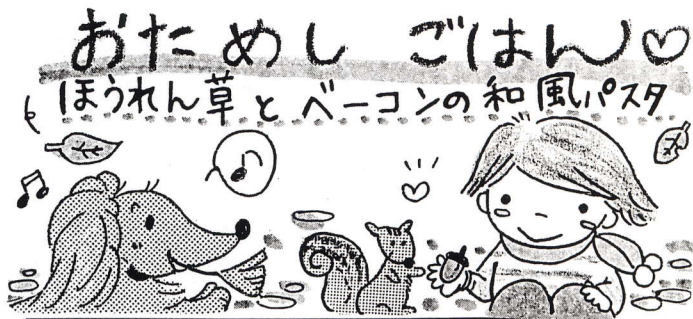 おためし ごはん♡
ほうれん草とベーコンの和風パスタ